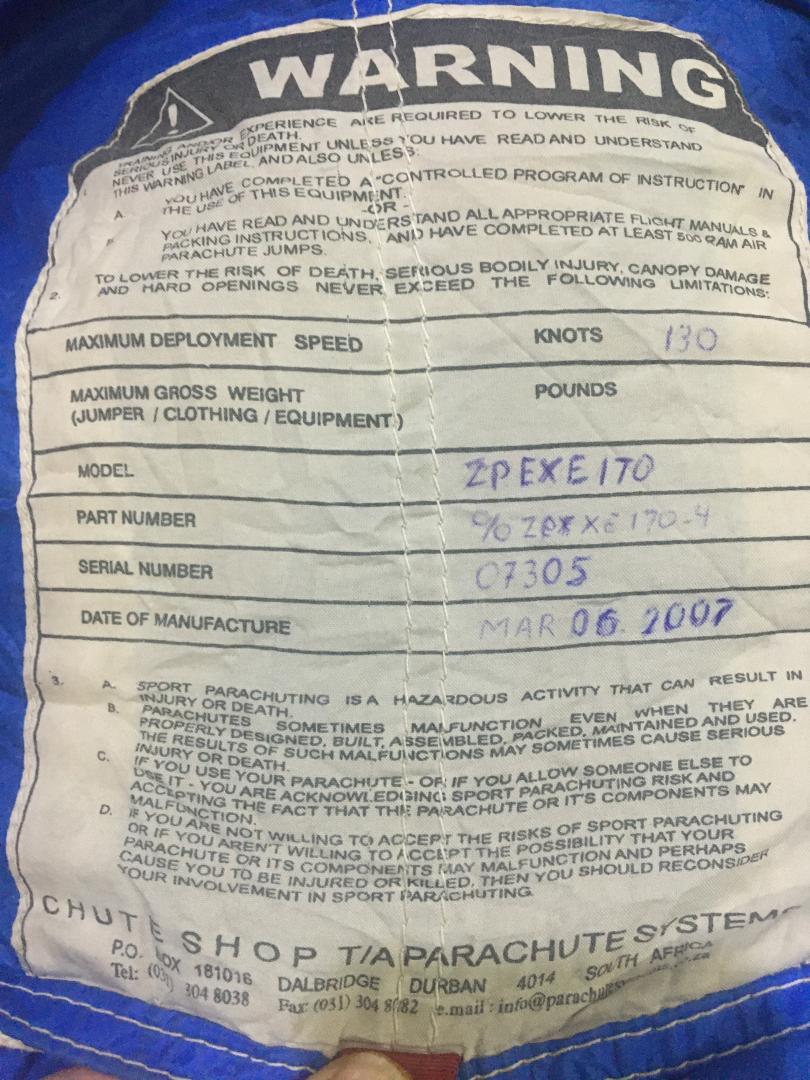 WARNING
TRAINING AND/OR EXPERIENCE ARE REQUIRED TO LOWER THE RISK OF
SERIOUS INJURY OR DEATH.
1. NEVER USE THIS EQUIPMENT UNLESS YOU HAVE READ AND UNDERSTAND
THIS WARNING LABEL, AND ALSO UNLESS:
A. YOU HAVE COMPLETED A "CONTROLLED PROGRAM OF INSTRUCTION" IN
THE USE OF THIS EQUIPMENT.
-OR-
B. YOU HAVE READ AND UNDERSTAND ALL APPROPRIATE FLIGHT MANUALS &
PACKING INSTRUCTIONS, AND HAVE COMPLETED AT LEAST 500 RAM AIR
PARACHUTE JUMPS.
2. TO LOWER THE RISK OF DEATH, SERIOUS BODILY INJURY, CANOPY DAMAGE
AND HARD OPENINGS NEVER EXCEED THE FOLLOWING LIMITATIONS:
MAXIMUM DEPLOYMENT SPEED KNOTS 130
MAXIMUM GROSS WEIGHT POUNDS
(JUMPER / CLOTHING / EQUIPMENT)
MODEL ZPEXE170
PART NUMBER % ZPEXE170-4
SERIAL NUMBER 07305
DATE OF MANUFACTURE MAR 06. 2007
3. A. SPORT PARACHUTING IS A HAZARDOUS ACTIVITY THAT CAN RESULT IN
INJURY OR DEATH.
B. PARACHUTES SOMETIMES MALFUNCTION EVEN WHEN THEY ARE
PROPERLY DESIGNED, BUILT, ASSEMBLED, PACKED, MAINTAINED AND USED.
THE RESULTS OF SUCH MALFUNCTIONS MAY SOMETIMES CAUSE SERIOUS
INJURY OR DEATH.
C. IF YOU USE YOUR PARACHUTE - OR IF YOU ALLOW SOMEONE ELSE TO
USE IT - YOU ARE ACKNOWLEDGING SPORT PARACHUTING RISK AND
ACCEPTING THE FACT THAT THE PARACHUTE OR IT'S COMPONENTS MAY
MALFUNCTION.
D. IF YOU ARE NOT WILLING TO ACCEPT THE RISKS OF SPORT PARACHUTING
OR IF YOU AREN'T WILLING TO ACCEPT THE POSSIBILITY THAT YOUR
PARACHUTE OR ITS COMPONENTS MAY MALFUNCTION AND PERHAPS
CAUSE YOU TO BE INJURED OR KILLED, THEN YOU SHOULD RECONSIDER
YOUR INVOLVEMENT IN SPORT PARACHUTING.
CHUTE SHOP T/A PARACHUTE SYSTEMS
P.O. BOX 181016 DALBRIDGE DURBAN 4014 SOUTH AFRICA
Tel: (031) 304 8038 Fax: (031) 304 8082 e.mail :